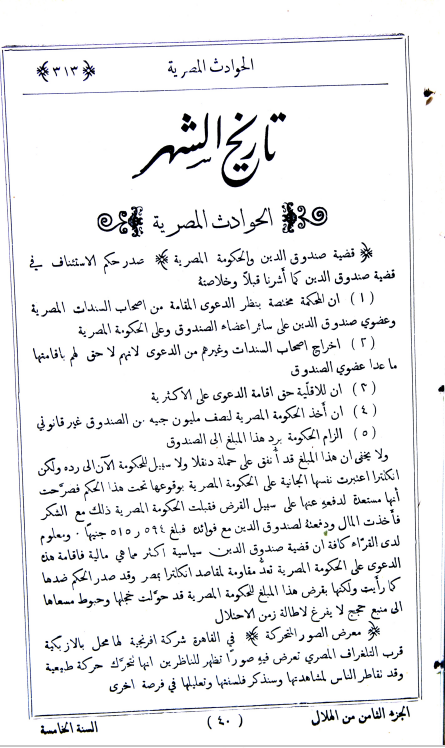 الحوادث المصرية
﴿ ٣١٣ ﴾
تاريخ الشهر
الحوادث المصرية
﴿ قضية صندوق الدين والحكومة المصرية ﴾ صدر حكم الاستئناف في
قضية صندوق الدين كما أشرنا قبلاً وخلاصتهُ
(١) ان المحكمة مختصة بنظر الدعوى المقامة من اصحاب السندات المصرية
وعضوي صندوق الدين على سائر اعضاء الصندوق وعلى الحكومة المصرية
(٢) اخراج اصحاب السندات وغيرهم من الدعوى لانهم لا حق لهم باقامتها
ما عدا عضوي الصندوق
(٣) ان للاقلية حق اقامة الدعوى على الاكثرية
(٤) ان أخذ الحكومة المصرية لنصف مليون جنيه من الصندوق غير قانوني
(٥) الزام الحكومة برد هذا المبلغ الى الصندوق
ولا يخفى ان هذا المبلغ قد أُنفق على حملة دنقلا ولا سبيل للحكومة الآن الى رده ولكن
انكلترا اعتبرت نفسها الجانية على الحكومة المصرية بوقوعها تحت هذا الحكم فصرَّحت
أنها مستعدة لدفعهِ عنها على سبيل القرض فقبلت الحكومة المصرية ذلك مع الشكر
فأخذت المال ودفعتهُ لصندوق الدين مع فوائدهِ فبلغ ٥٩٤ ر ٥١٥ جنيهًا. ومعلوم
لدى القرَّاء كافة ان قضية صندوق الدين سياسية أكثر مما هي مالية فاقامة هذه
الدعوى على الحكومة المصرية تعدُّ مقاومة لمقاصد انكلترا بمصر وقد صدر الحكم ضدها
كما رأيت ولكنها بقرض هذا المبلغ للحكومة المصرية قد حوَّلت خجلها وحبوط مسعاها
الى منبع حجج لا يفرغ لاطالة زمن الاحتلال
﴿ معرض الصور المتحركة ﴾ في القاهرة شركة افرنجية لها محل بالازبكية
قرب التلغراف المصري تعرض فيهِ صورًا تظهر للناظرين انها تتحرَّك حركة طبيعية
وقد تقاطر الناس لمشاهدتها وسنذكر فلسفتها وتعليلها في فرصة اخرى
الجزء الثامن من الهلال
(٤٠)
السنة الخامسة